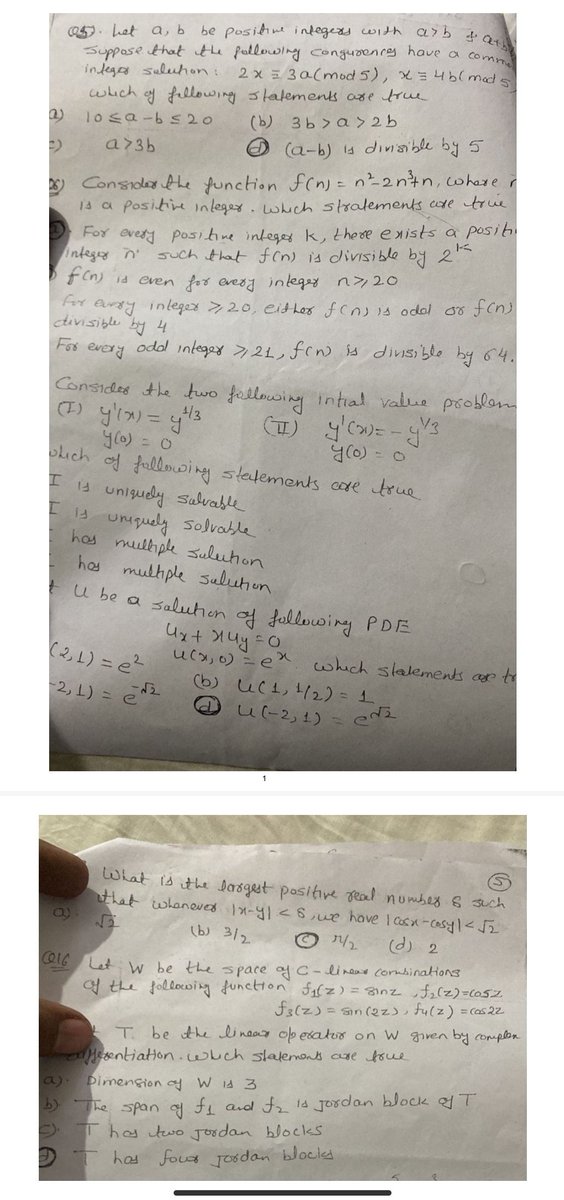 Q5). Let a, b be positive integers with a>b &
Suppose that the following congurences have a
integer solution : 2x ≡ 3a(mod 5), x ≡ 4b(mod 5)
which of following statements are true
a) 10 ≤ a-b ≤ 20 (b) 3b > a > 2b
c) a>3b (d) (a-b) is divisible by 5
Consider the function f(n) = n²-2n³+n, where
is a positive integer. which stratements are true
For every positive integer k, there exists a
integer n such that f(n) is divisible by 2ᴷ
f(n) is even for every integer n ≥ 20
For every integer ≥ 20, either f(n) is odd or f(n)
divisible by 4
For every odd integer ≥ 21, f(n) is divisible by 64.
Consider the two following intial value problem
(I) y'(x) = y^1/3 (II) y'(x) = - y^1/3
y(0) = 0 y(0) = 0
which of following statements are true
I is uniquely salvable
I is uniquely solvable
has multiple solution
has multiple solution
U be a solution of following PDE
Ux + xUy = 0
u(x,0) = eˣ. which statements are
(2,1) = e² (b) u(1, 1/2) = 1
-2, 1) = e^-√2 (d) u(-2, 1) = e^√2
1
5
What is the largest positive real number δ such
that whenever |x-y| < δ, we have |cosx-cosy| < √2
a). √2 (b) 3/2 (c) π/2 (d) 2
Q16 Let W be the space of C - linear combinations
of the following function f₁(z) = sinz, f₂(z)=cosz
f₃(z) = sin(2z), f₄(z) = cos2z
T be the linear operator on W given by complex
differentiation. which statements are true
a). Dimension of W is 3
b) The span of f₁ and f₂ is Jordan block of T
c). T has two Jordan blocks
d T has four Jordan blocks